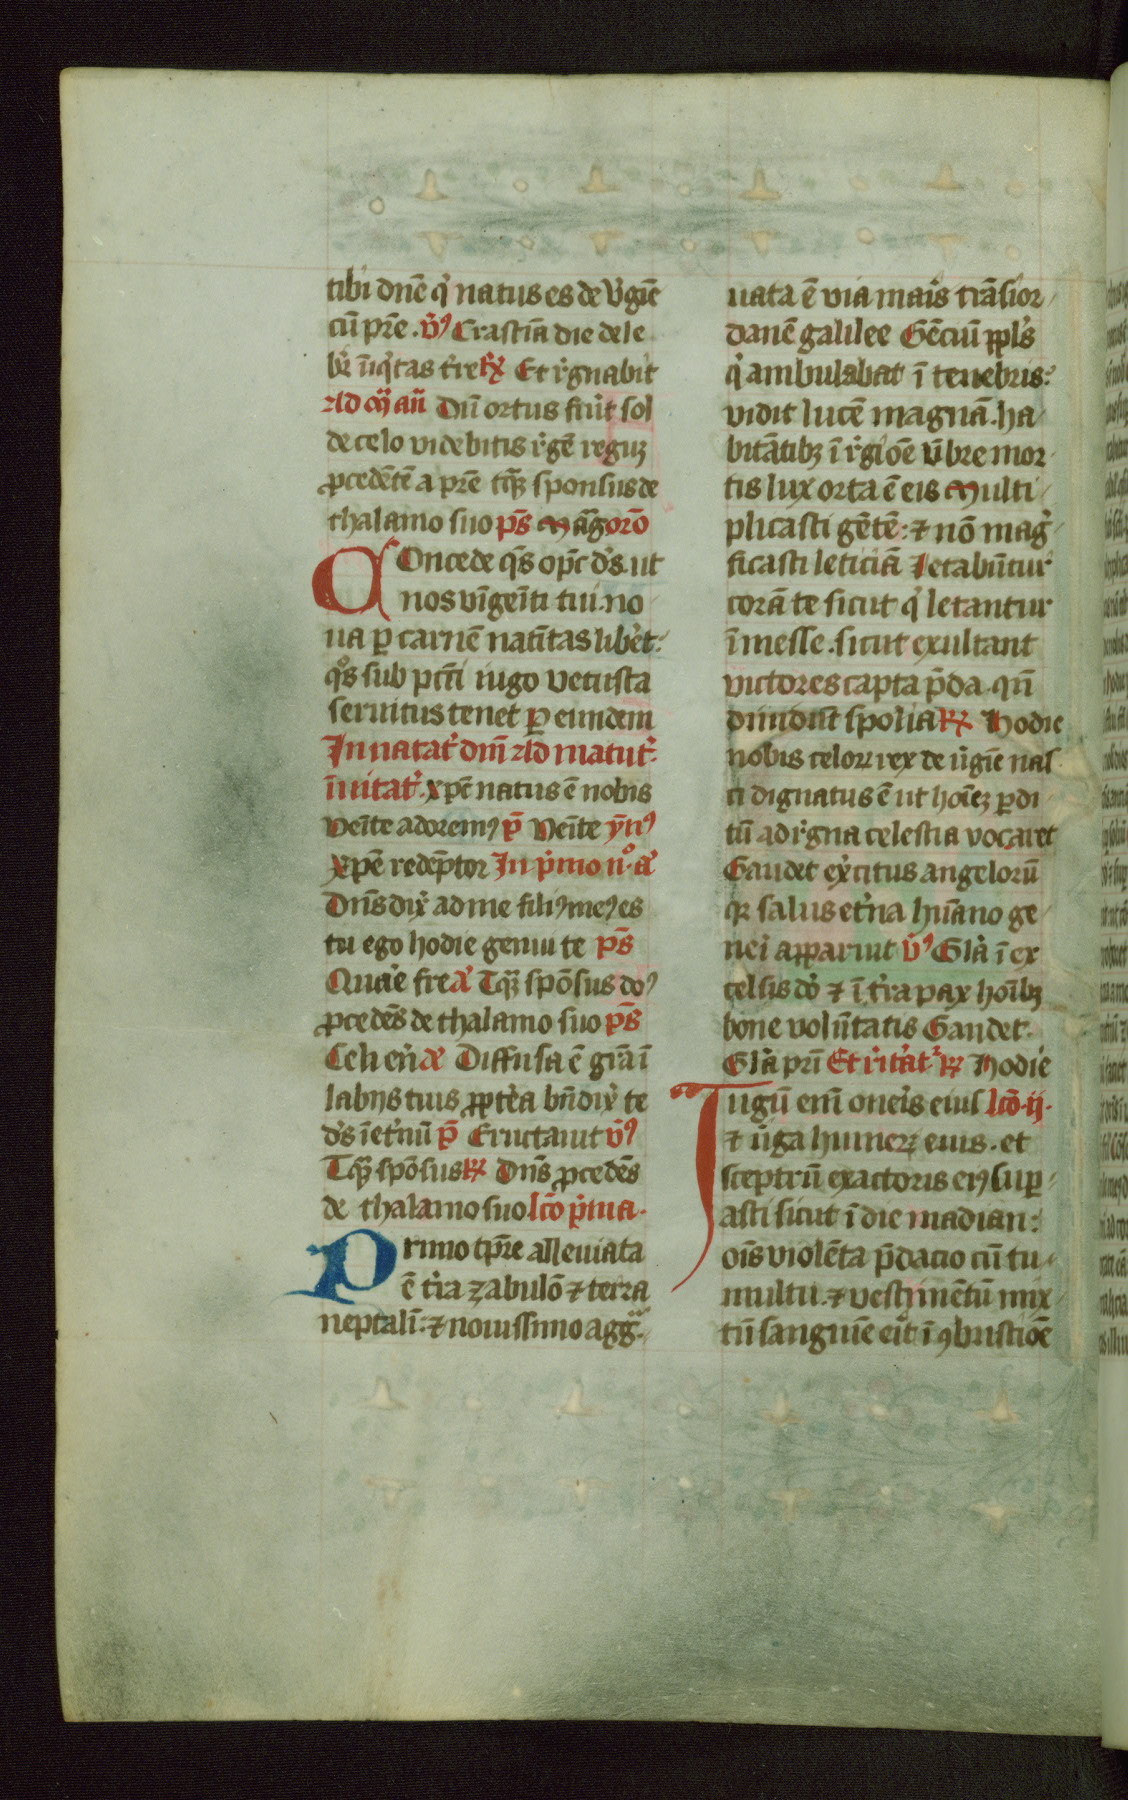 tibi dn̄e q̇ natus es de v̇gīe
cū pr̄e . v̇ꝰ Crastīa die dele
bit̉ īiq̇tas tr̉e ℟ Et r̉gnabit̉
Ad m̄ añ Dū ortus fūit sol
de celo videbitis r̉gē regūꝫ
ꝓcedētē a pr̄e tq̄ꝫ sponsus de
thalamo suo p̄s Māg orō
Concede q̄s op̄c ds̄. ut
nos vn̄igēiti tui . no
ua ꝑ carnē natītas libēt:
qos sub pctī iugo vetusta
seruitus tenet ꝑ eundem
In natat̉ dn̄i Ad matut̉.
īuitat̉. xp̄c natus ē nobis
veīte adoremꝰ p̄ Veīte ẏnꝰ
xp̄e redēptor In p̉mo n̊. ả
Dn̄s dix̉ ad me filiꝰ meꝰ es
tu ego hodie genui te p̄s
Quar̉e fre ả Tq̄ꝫ spōsus doꝰ
ꝓcedēs de thalamo suo p̄s
Celi en̉ ả Diffusa ē gr̄a ī
labijs tuis ꝓpt̉ea bn̄dix̉ te
ds̄ ī et̉nū p̄ Eructauit v̇ꝰ
Tq̄ꝫ spōsus ℟ Dn̄s ꝓcedēs
de thalamo suo lc̄o p̉ma.
Primo tp̄re alleuiata
ē tr̉ra zabulō ⁊ terra
neptalī: ⁊ nouissimo agg̉.
uata ē via mar̉is trāsior
danē galilee Gēciū ppl̄s
q̇ ambulabat ī tenebris:
vidit lucē magnā . ha
bitātibꝫ ī r̉gioē v̄bre mor
tis lux orta ē eis Multi
plicasti gētē: ⁊ nō mag̉
ficasti leticiā letabūtur
corā te sicut q̇ letantur
ī messe . sicut exultant
victores capta p̄da . qn̄
diuidūt spolia ℟ Hodie
nobis celoꝝ rex de v̇gīe nas
ci dignatus ē ut hoīeꝫ ꝑdi
tū ad r̉gna celestia vocaret
Gaudet ex̉citus angelorū
qꝛ salus et̉na hūano ge
neri apparuit v̇ꝰ Gl̄a ī ex
celsis dō ⁊ ī tr̉ra pax hoībꝫ
bone volūtatis Gaudet.
Gl̄a pr̄i Et r̉itat̉ ℟ Hodie
Iugū enī oner̉is eius lc̄o ij.
⁊ v̇ga humeꝝ eius . et
sceptrū exactoris eiꝰ suꝑ
asti sicut ī die madian:
oīs violēta p̄dacio cū tu
multu . ⁊ vestimētū mix
tū sanguīe er̉it ī ꝯbustioē